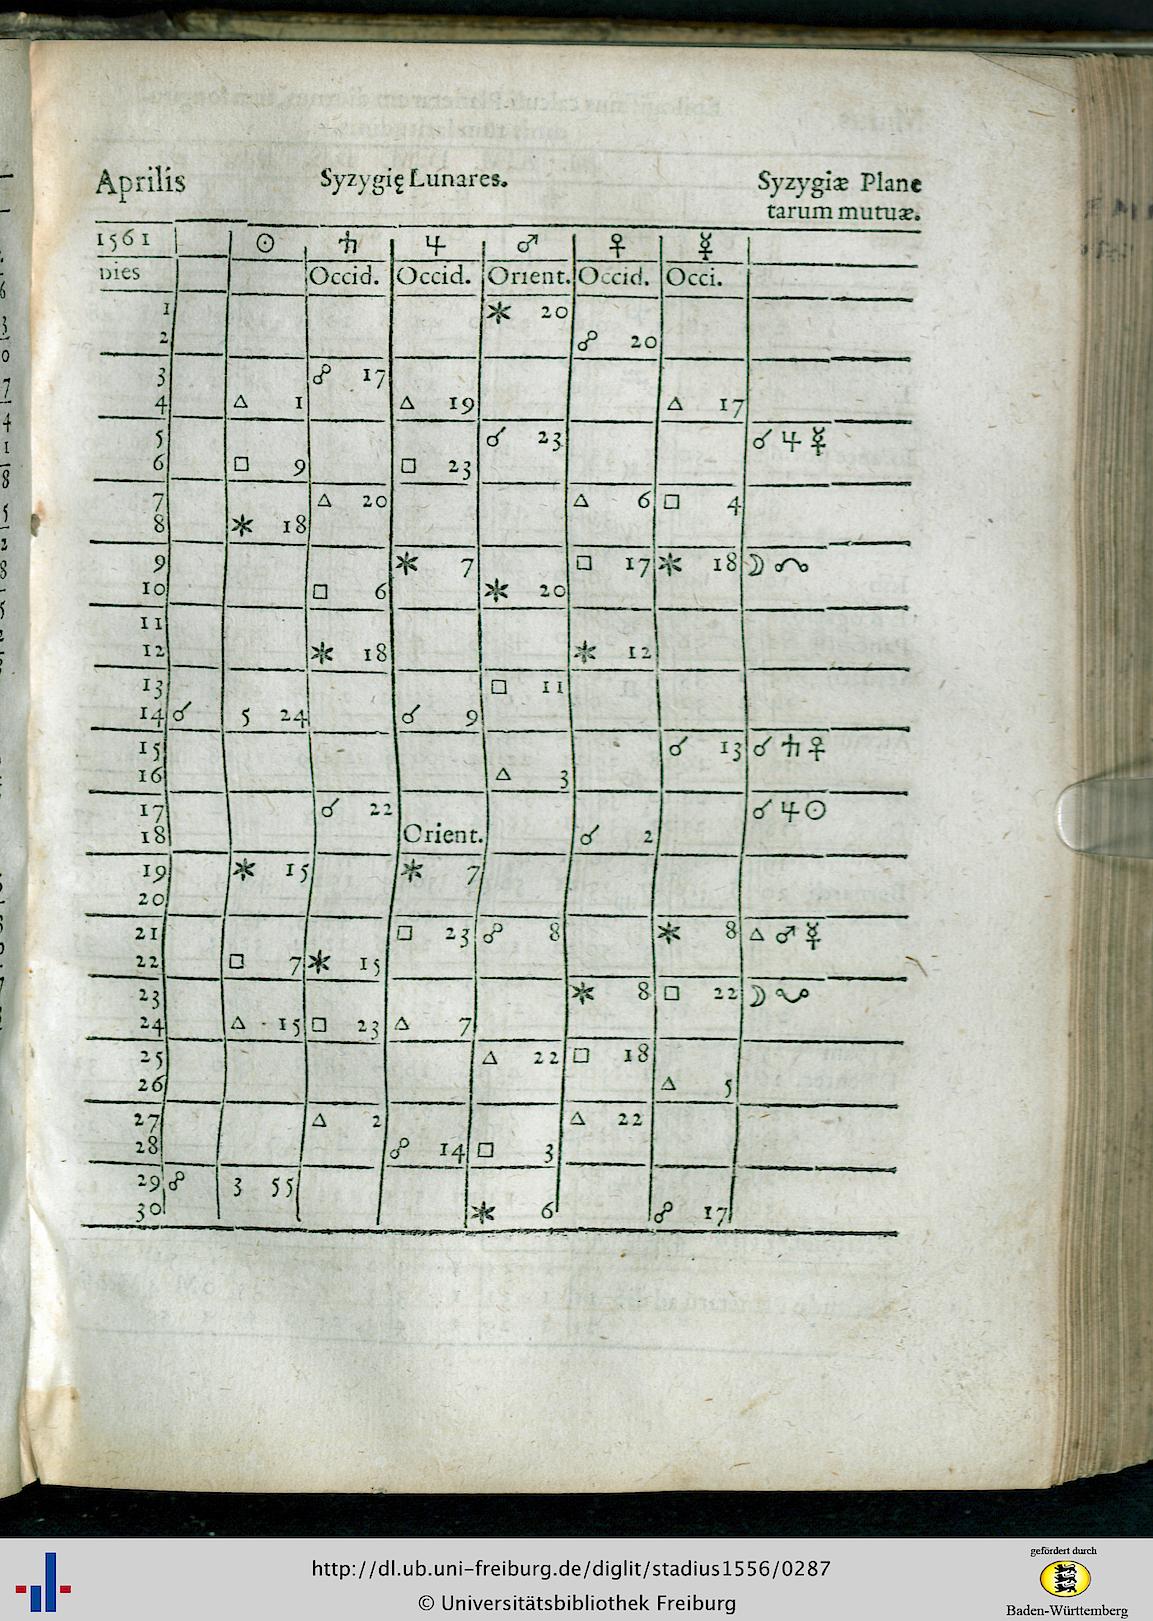 Aprilis Syzygię Lunares. Syzygiæ Plane
tarum mutuæ.
1561 ☉ ♄ ♃ ♂ ♀ ☿
Dies Occid. Occid. Orient. Occid. Occi.
1 ⚹ 20
2 ☍ 20
3 ☍ 17
4 △ 1 △ 19 △ 17
5 ☌ 23 ☌ ♃ ☿
6 □ 9 □ 23
7 △ 20 △ 6 □ 4
8 ⚹ 18
9 ⚹ 7 □ 17 ⚹ 18 ☽ ☊
10 □ 6 ⚹ 20
11
12 ⚹ 18 ⚹ 12
13 □ 11
14 ☌ 5 24 ☌ 9
15 ☌ 13 ☌ ♄ ♀
16 △ 3
17 ☌ 22 ☌ ♃ ☉
18 Orient. ☌ 2
19 ⚹ 15 ⚹ 7
20
21 □ 23 ☍ 8 ⚹ 8 △ ♂ ☿
22 □ 7 ⚹ 15
23 ⚹ 8 □ 22 ☽ ☋
24 △ 15 □ 23 △ 7
25 △ 22 □ 18
26 △ 5
27 △ 2 △ 22
28 ☍ 14 □ 3
29 ☍ 3 55
30 ⚹ 6 ☍ 17
http://dl.ub.uni-freiburg.de/diglit/stadius1556/0287
© Universitätsbibliothek Freiburg
gefördert durch
Baden-Württemberg